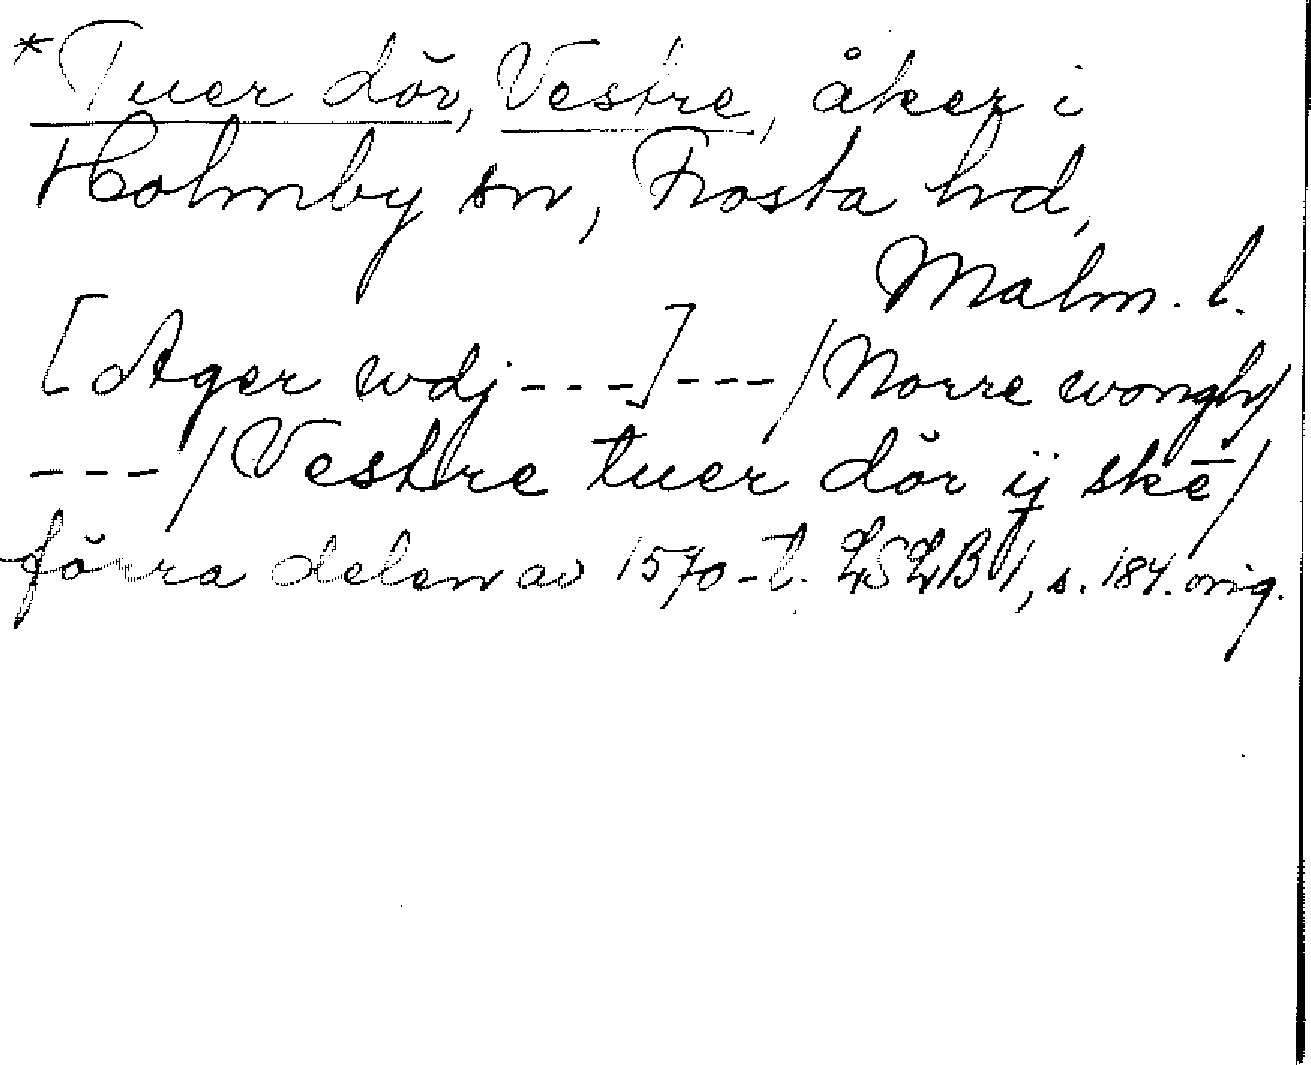 *Tuer dör, Vestre, åker i
Holmby sn, Frosta hd,
Malm. l.
[Ager wdj ---] --- / Norre wongh/
--- / Vestre tuer dör ij skē/
förra delen av 1570-t. LSLB 1, s. 184. orig.